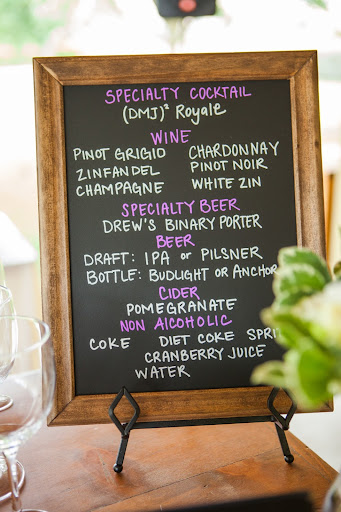 SPECIALTY COCKTAIL
(DMJ)² ROYALE
WINE
PINOT GRIGIO CHARDONNAY
ZINFANDEL PINOT NOIR
CHAMPAGNE WHITE ZIN
SPECIALTY BEER
DREW'S BINARY PORTER
BEER
DRAFT: IPA OR PILSNER
BOTTLE: BUDLIGHT OR ANCHOR
CIDER
POMEGRANATE
NON ALCOHOLIC
COKE DIET COKE
CRANBERRY JUICE
WATER